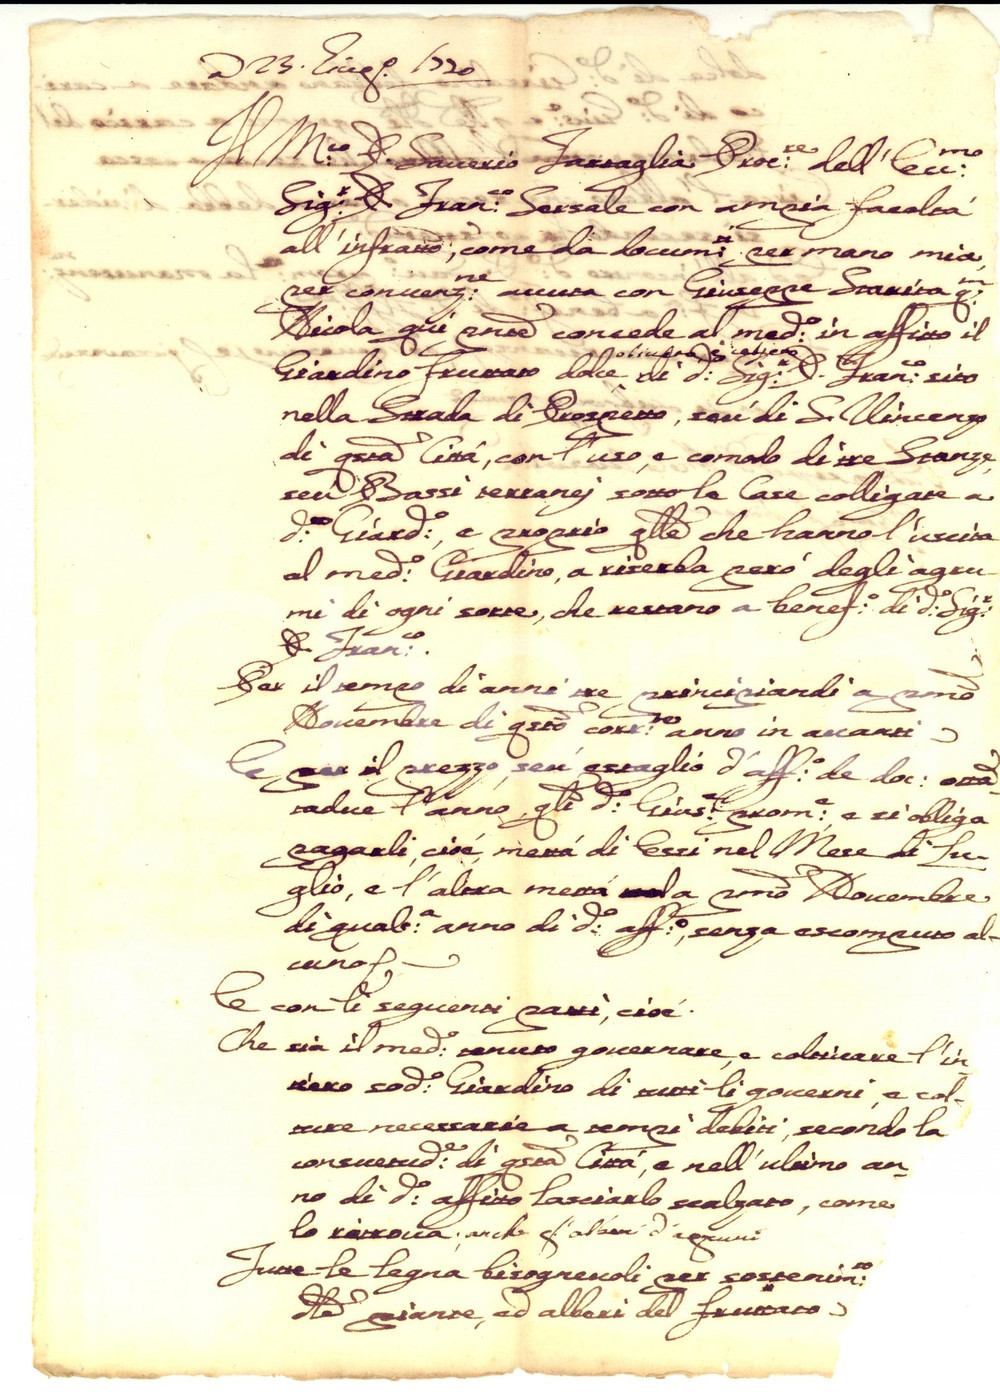 A 23. Giug.o 1720
Il M.co D. Saverio Tartaglia Proc.re dell' Ecc.mo
Sig.r D. Fran.co Sersale con ampia facoltà
all' infratto, come da docum.ti per mano mia,
per convenz.ne avuta con Giuseppe Starita q.m
Nicola quì pnte concede al med.o in affitto il
Giardino fruttato dolce di d.o Sig.r D. Fran.co sito
nella Strada di Prospetto, seù di S. Vincenzo
di qsta Città, con l'uso, e comodo di tre Stanze,
seù Bassi terranei sotto le Case colligate a
d.o Giard.o, e proprio qlle che hanno l'uscita
al med.o Giardino, a riserba però degli agru-
mi di ogni sorte, che restano a benef.o di d.o Sig.r
D. Fran.co.
Per il tempo di anni tre, principiandi a pmo
Novembre di qsto corr.te anno in avanti
E per il prezzo, seù estaglio d'aff.o de doc: otta-
tadue l'anno, qli d.o Gius.e prom.e, e si obliga
pagarli, cioè, metà di Essi nel Mese di Lu-
glio, e l'altra metà a pmo Novembre
di quals.a anno di d.o aff.o, senza escomputo al-
cuno
E con li seguenti patti, cioè.
Che sia il med.o tenuto governare, e coltivare l'in-
tiero sod.o Giardino di tutti li governi, e col-
ture necessarie a tempi debiti, secondo la
consuetud.e di qsta Città, e nell' ultimo an-
no di d.o affitto lasciarlo scalzato, come
lo ritrova, anche gl'alberi d'agrumi
Tutte le legna bisognevoli per sostenim.to
dlle piante, ed alberi del fruttato